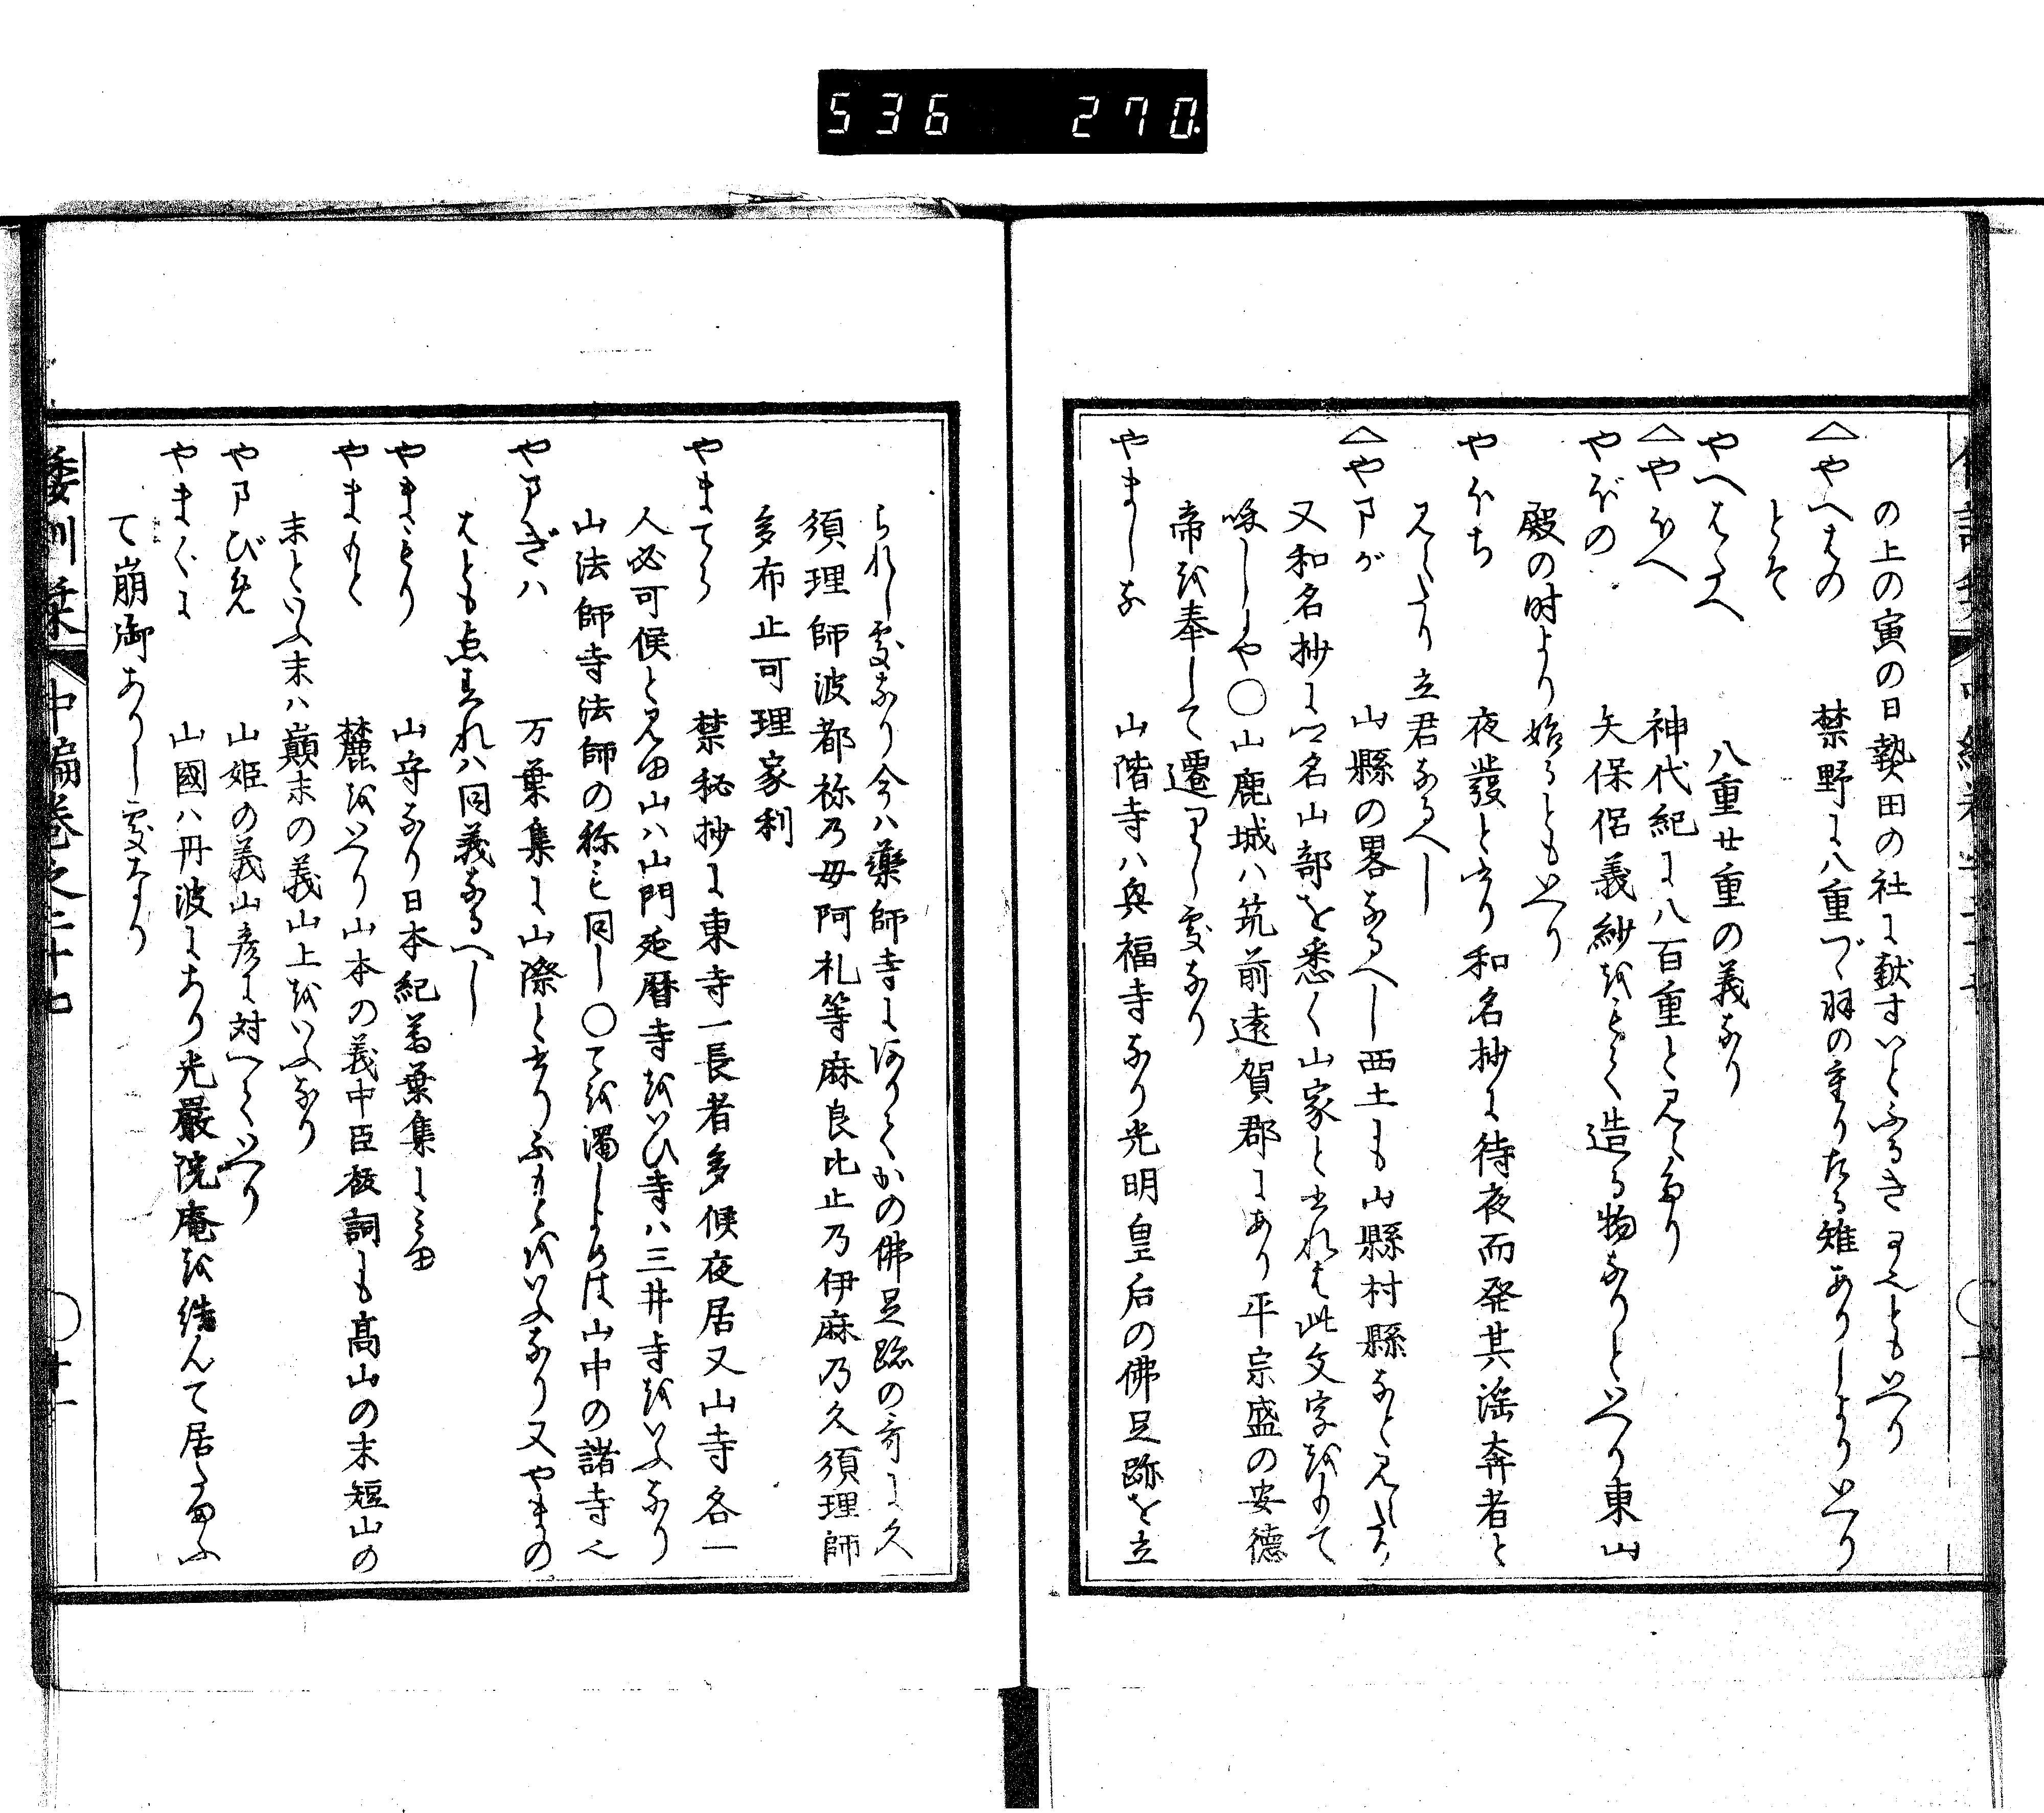 536 270.
の上の寅の日熱田の社に献すいとふるき事ともいへり
△やへはの 禁野に八重づゝ羽の重りたる雉ありしよりいへり
とそ
やへはたへ 八重廿重の義なり
△やほへ 神代紀に八百重と見えたり
やぼの 矢保侶義紗をもて造る物なりといへり東山
殿の時より始るともいへり
やほち 夜發と書り和名抄に待夜而発其淫奔者と
見えたり立君なるへし
△やまが 山縣の畧なるへし西土にも山縣村縣なと見えたり
又和名抄に郷名山部を悉く山家と書れは此文字をもて
喚しにや○山鹿城ハ筑前遠賀郡にあり平宗盛の安徳
帝を奉して遷りし處なり
やましな 山階寺ハ興福寺なり光明皇后の佛足跡を立
られし處なり今ハ藥師寺にありてかの佛足跡の哥に久
須理師波都祢乃毋阿礼等麻良比止乃伊麻乃久須理師
多布止可理家利
やまてら 禁秘抄に東寺一長者多候夜居又山寺各一
人必可候と見ゆ山ハ山門延暦寺をいひ寺ハ三井寺をいふなり
山法師寺法師の称も同し○てを濁しよめは山中の諸寺也
やまぎハ 万葉集に山際と書りふもとをいふなり又やまの
はとも点すれハ同義なるへし
やまもり 山守なり日本紀萬葉集に見ゆ
やまもと 麓をいへり山本の義中臣祓詞にも高山の末短山の
末といふ末ハ巓末の義山上をいふなり
やまびめ 山姫の義山彦に対へていへり
やまぐに 山國ハ丹波にあり光嚴院庵を結んて居たまふ
て崩御ありし處なり
倭訓栞 中編巻之二十七 ○廿一